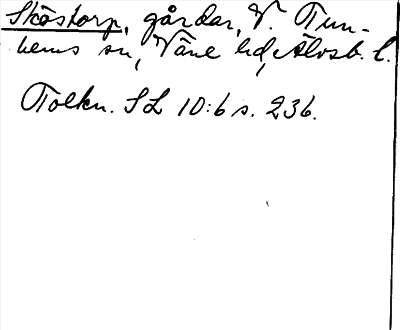 Sköstorp, gårdar, V. Tun-
hems sn, Väne hd, Älvsb. l.
Tolkn. SL 10:6 s. 236.